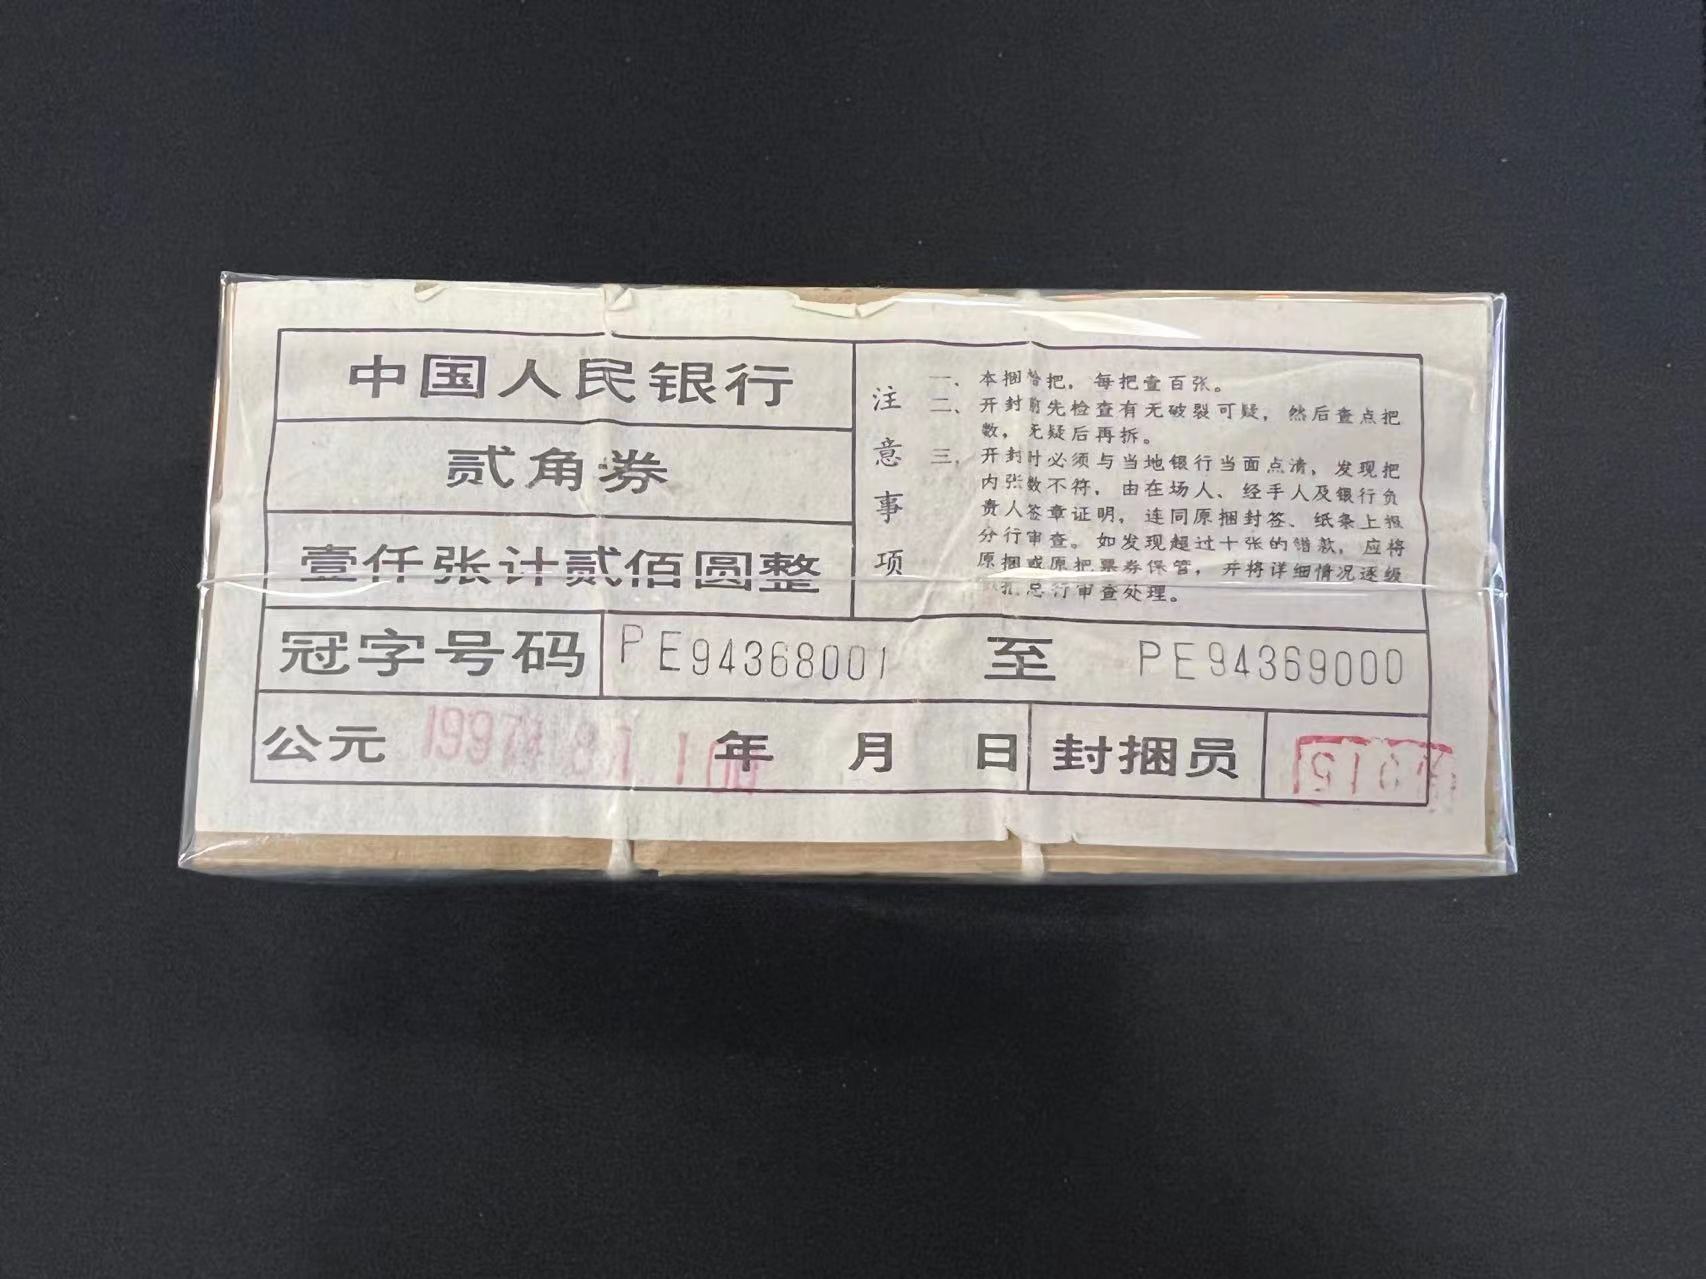 中国人民银行
贰角券
壹仟张计贰佰圆整
注意事项
一、本捆拾把，每把壹百张。
二、开封前先检查有无破裂可疑，然后查点把
数，无疑后再拆。
三、开封时必须与当地银行当面点清，发现把
内张数不符，由在场人、经手人及银行负
责人签章证明，连同原捆封签、纸条上报
分行审查。如发现超过十张的错款，应将
原捆或原把票券保管，并将详细情况逐级
报总行审查处理。
冠字号码 PE94368001 至 PE94369000
公元 1997年 年 月 日 封捆员